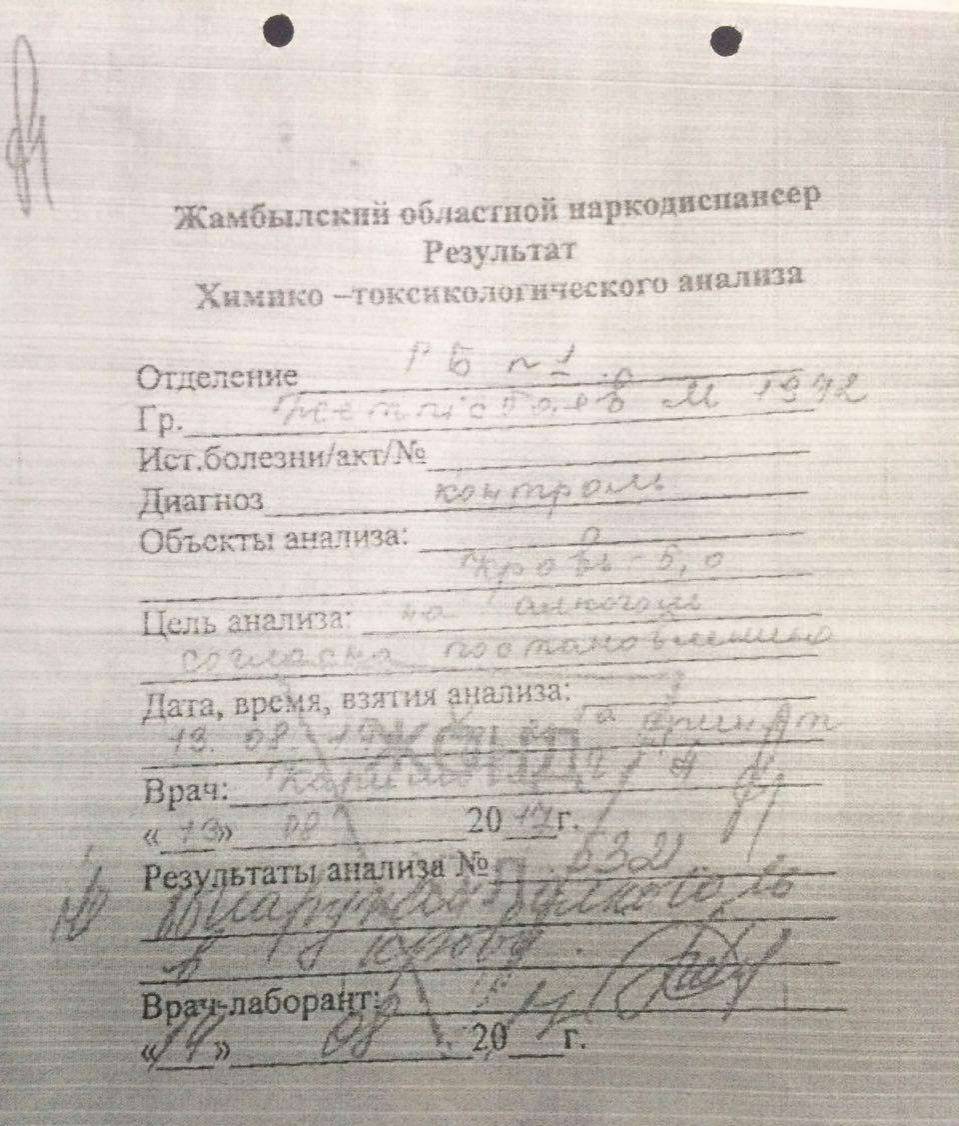 Жамбылский областной наркодиспансер
Результат
Химико –токсикологического анализа
Отделение РБ №1
Гр. М 1972
Ист.болезни/акт/№
Диагноз контроль
Объекты анализа:
кровь-5,0
Цель анализа: на алкоголь
согласно постановлению
Дата, время, взятия анализа:
13. 08.
ЖОНД
Врач:
«13» 08 2017г.
Результаты анализа № 532
алкоголь
в крови.
Врач-лаборант:
«14» 08 20 г.